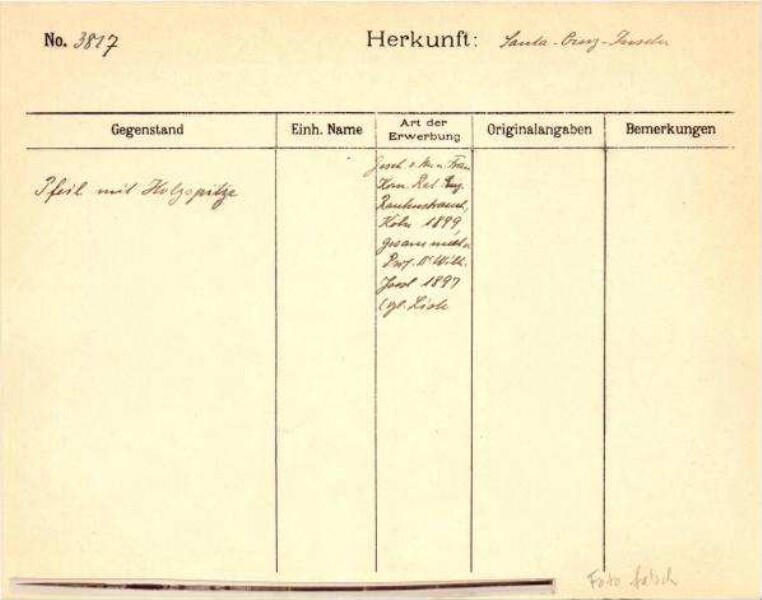 No. 3817
Herkunft: Santa-Cruz-Inseln
Gegenstand
Einh. Name
Art der
Erwerbung
Originalangaben
Bemerkungen
Pfeil mit Holzspitze
Gesch. v. Frau
Kom. Rat Eug.
Rautenstrauch,
Köln 1899,
gesammelt v.
Prof. Dr Wilh.
Joest 1897
(vgl. Liste
Foto falsch